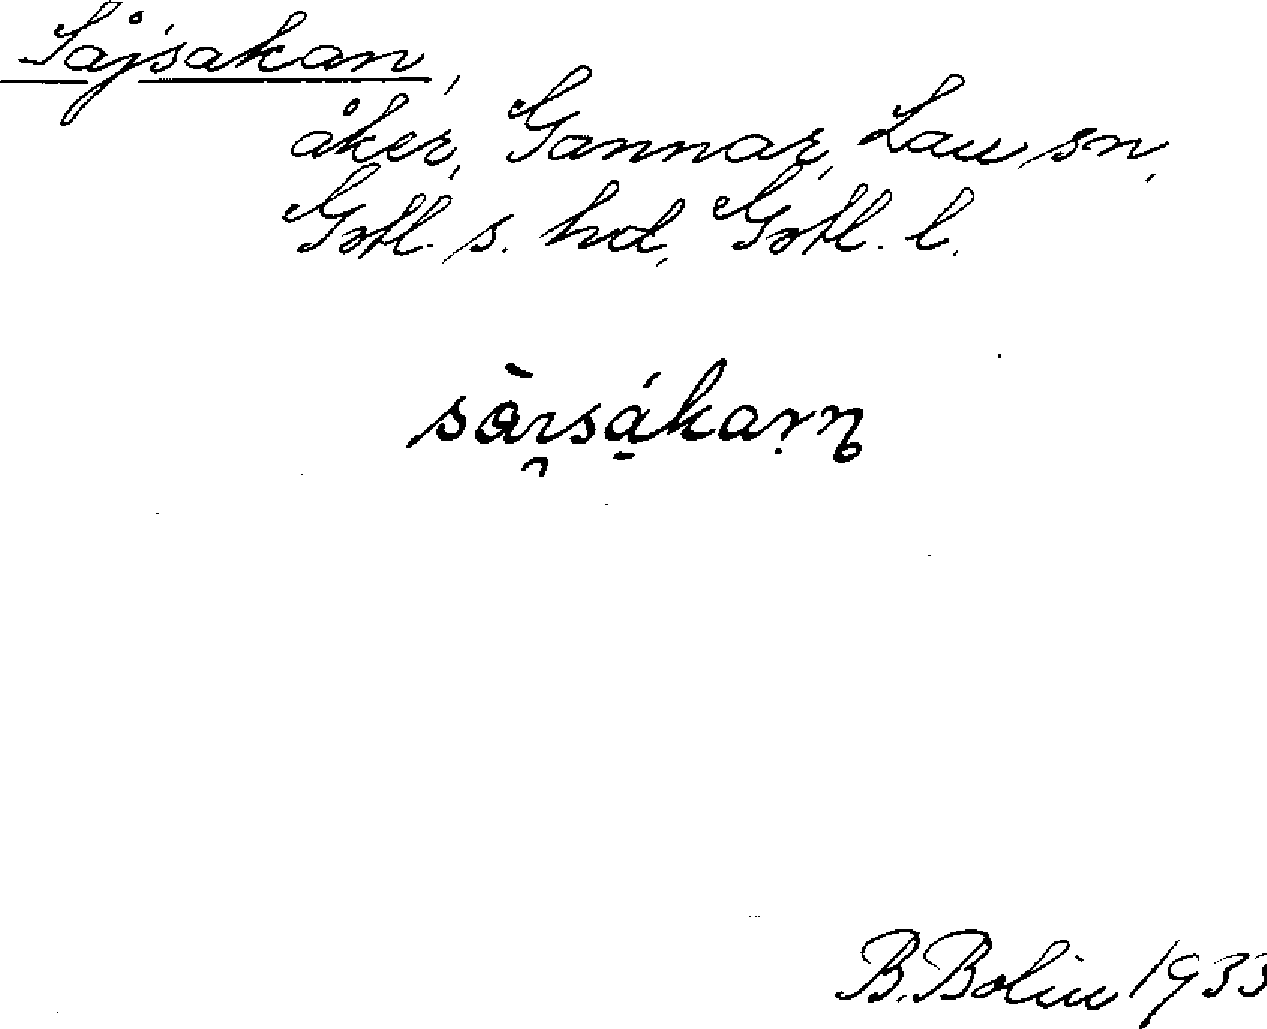 Såjsakan,
åker, Gannar, Lau sn,
Gotl. s. hd, Gotl. l.
B. Bolin 1933